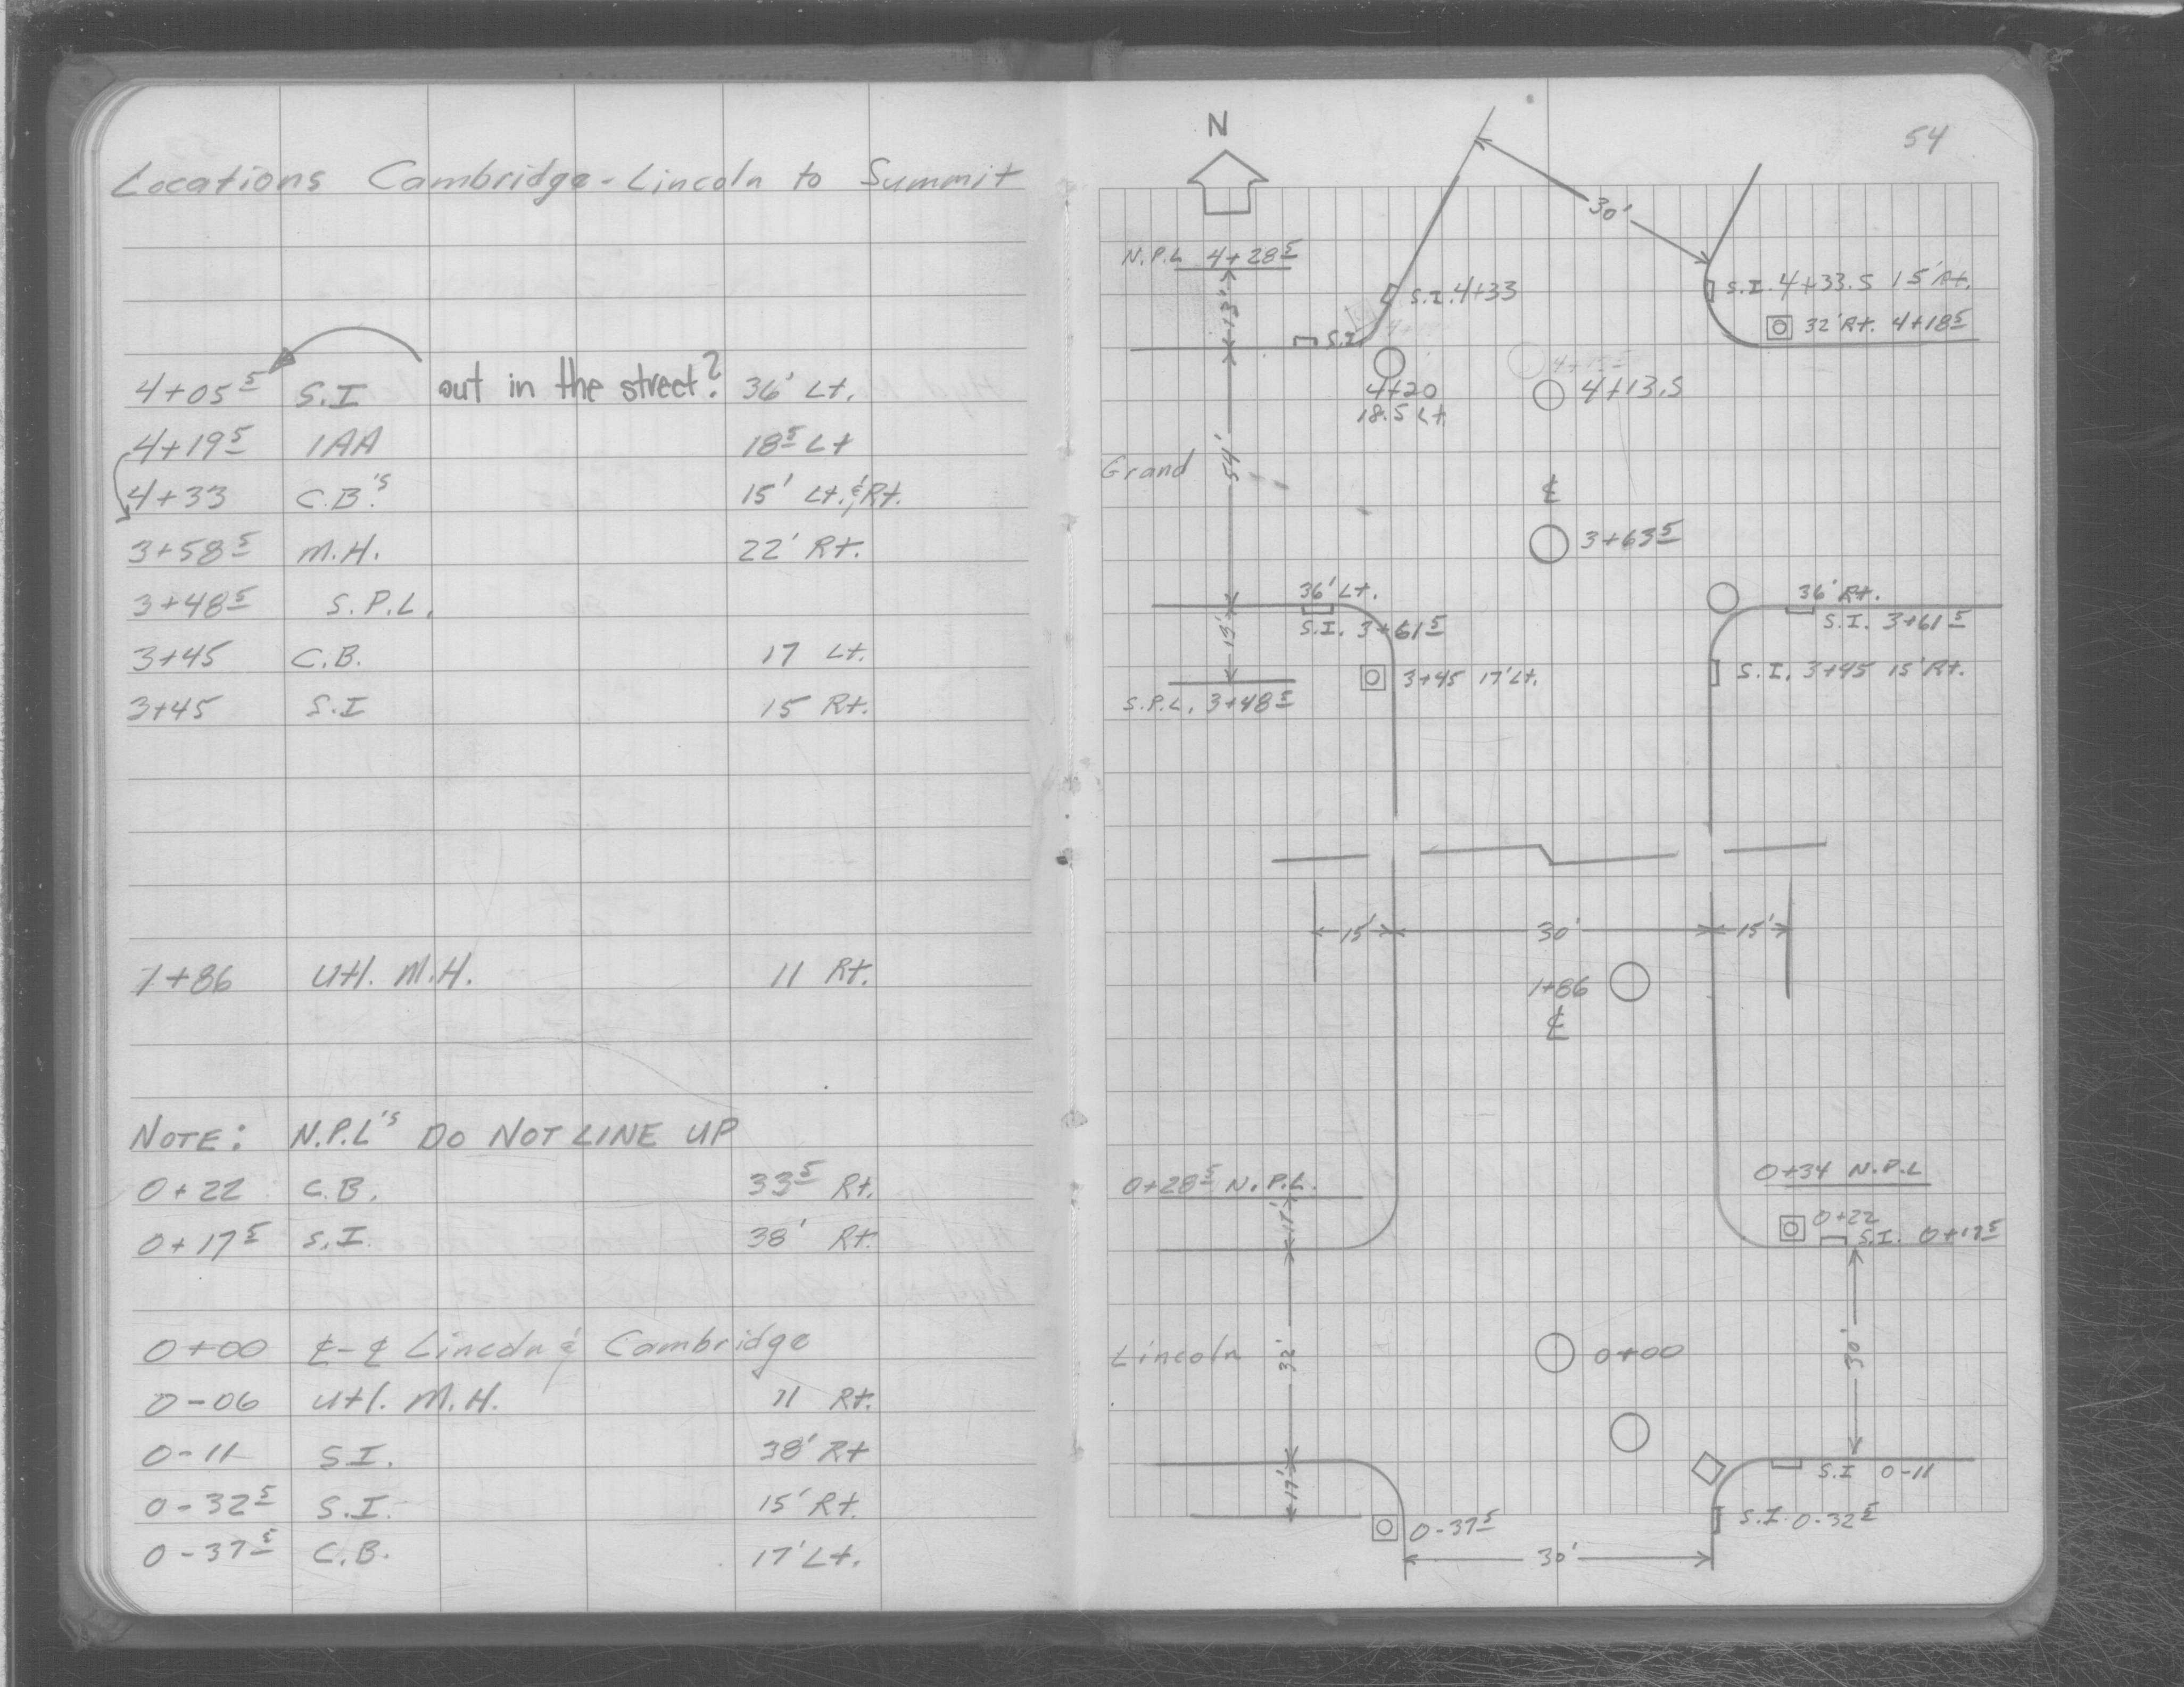 Locations Cambridge - Lincoln to Summit
4+05 5 S.I out in the street? 36' Lt.
4+19 5 1AA 18 5 Lt
4+33 C.B.'s 15' Lt. & Rt.
3+58 5 M.H. 22' Rt.
3+48 5 S.P.L.
3+45 C.B. 17 Lt.
3+45 S.I 15 Rt.
1+86 Utl. M.H. 11 Rt.
NOTE: N.P.L's DO NOT LINE UP
0+22 C.B. 33 5 Rt.
0+17 5 S.I. 38' Rt.
0+00 ℄-℄ Lincoln & Cambridge
0-06 Utl. M.H. 11 Rt.
0-11 S.I. 38' Rt
0-32 5 S.I. 15' Rt.
0-37 5 C.B. 17' Lt.
54
N
30'
N.P.L 4+28 5
13'
S.I. 4+33
S.I. 4+33.5 15' Rt.
32' Rt. 4+18 5
S.I.
4+20
18.5 Lt
4+13.5
Grand
54'
℄
3+63 5
36' Lt.
S.I. 3+61 5
36' Rt.
S.I. 3+61 5
13'
3+45 17' Lt.
S.I. 3+45 15' Rt.
S.P.L. 3+48 5
15'
30'
15'
1+86
℄
0+34 N.P.L
0+28 5 N.P.L.
17'
0+22
S.I. 0+17 5
Lincoln
32'
0+00
30'
S.I 0-11
17'
0-37 5
S.I. 0-32 5
30'